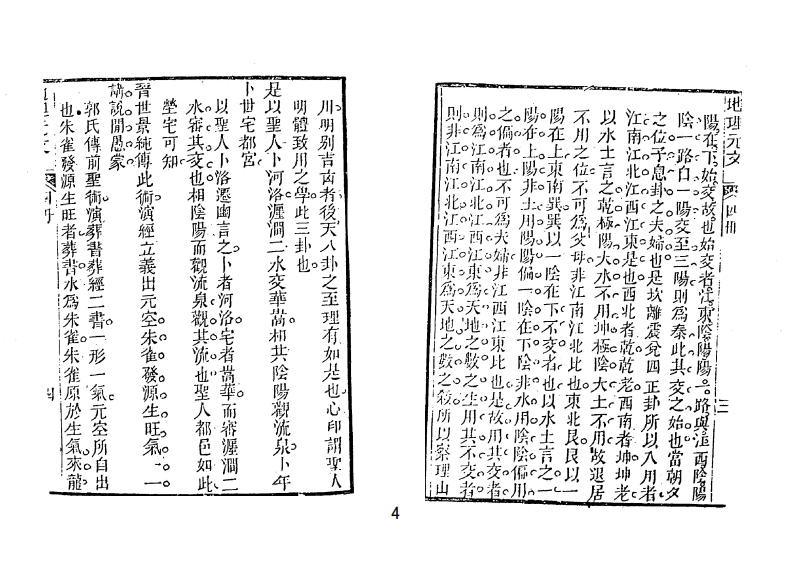 地理元文 四冊 三
陽在下始交故也始交者江東陰陽陽一路與江西陰陽
陰一路口一陽交至三陽則爲泰此其交之始也當朝夕
之位子息卦之夫婦也是坎離震兌四正卦所以入用者
江南江北江西江東是也西北者乾乾老西南者坤坤老
以水土言之乾極陽大水不用坤極陰大土不用故退居
不用之位不可爲父母非江南江北比也東北艮艮以一
陽在上東南巽巽以一陰在下不交者也以水土言之一
陽在上陽非土用陽陽偏一陰在下陰非水用陰陰偏用
之偏者也不可爲夫婦非江西江東比也是故用其交者
則爲江南江北江西江東爲天地之數之生用其不交者
則非江南江北江西江東爲天地之數之殺所以察理山
川明別吉凶者後天八卦之至理有如是也心印謂聖人
明體致用之學此三卦也
是以聖人卜河洛瀍澗二水交華嵩相其陰陽觀流泉卜年
卜世宅都宮
以聖人卜洛遷幽言之卜者河洛宅者嵩華而審瀍澗二
水審其交也相陰陽而觀流泉觀其流也聖人都邑如此
塋宅可知
晉世景純傳此術演經立義出元空朱雀發源生旺氣一一
講說開愚蒙
郭氏傳前聖術演葬書葬經二書一形一氣元空所自出
也朱雀發源生旺者葬書水爲朱雀朱雀原於生氣來龍
四
4